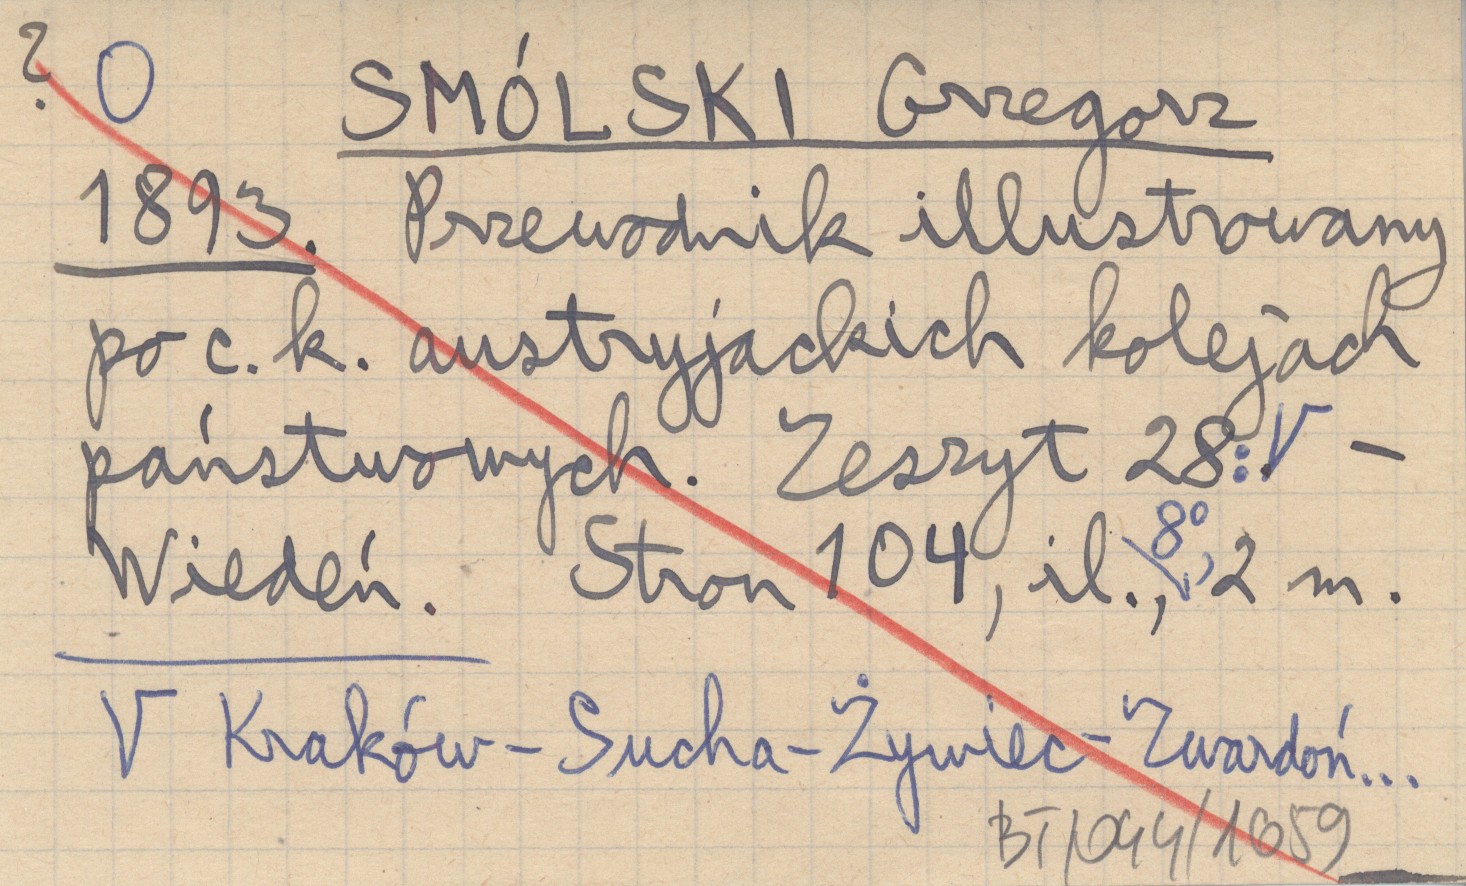 ? O SMÓLSKI Grzegorz
1893. Przewodnik illustrowany
po c. k. austryjackich kolejach
państwowych. Zeszyt 28:V –
Wiedeń. Stron 104, il., 8°, 2 m.
V Kraków – Sucha – Żywiec – Zwardoń...
BT/044/1059